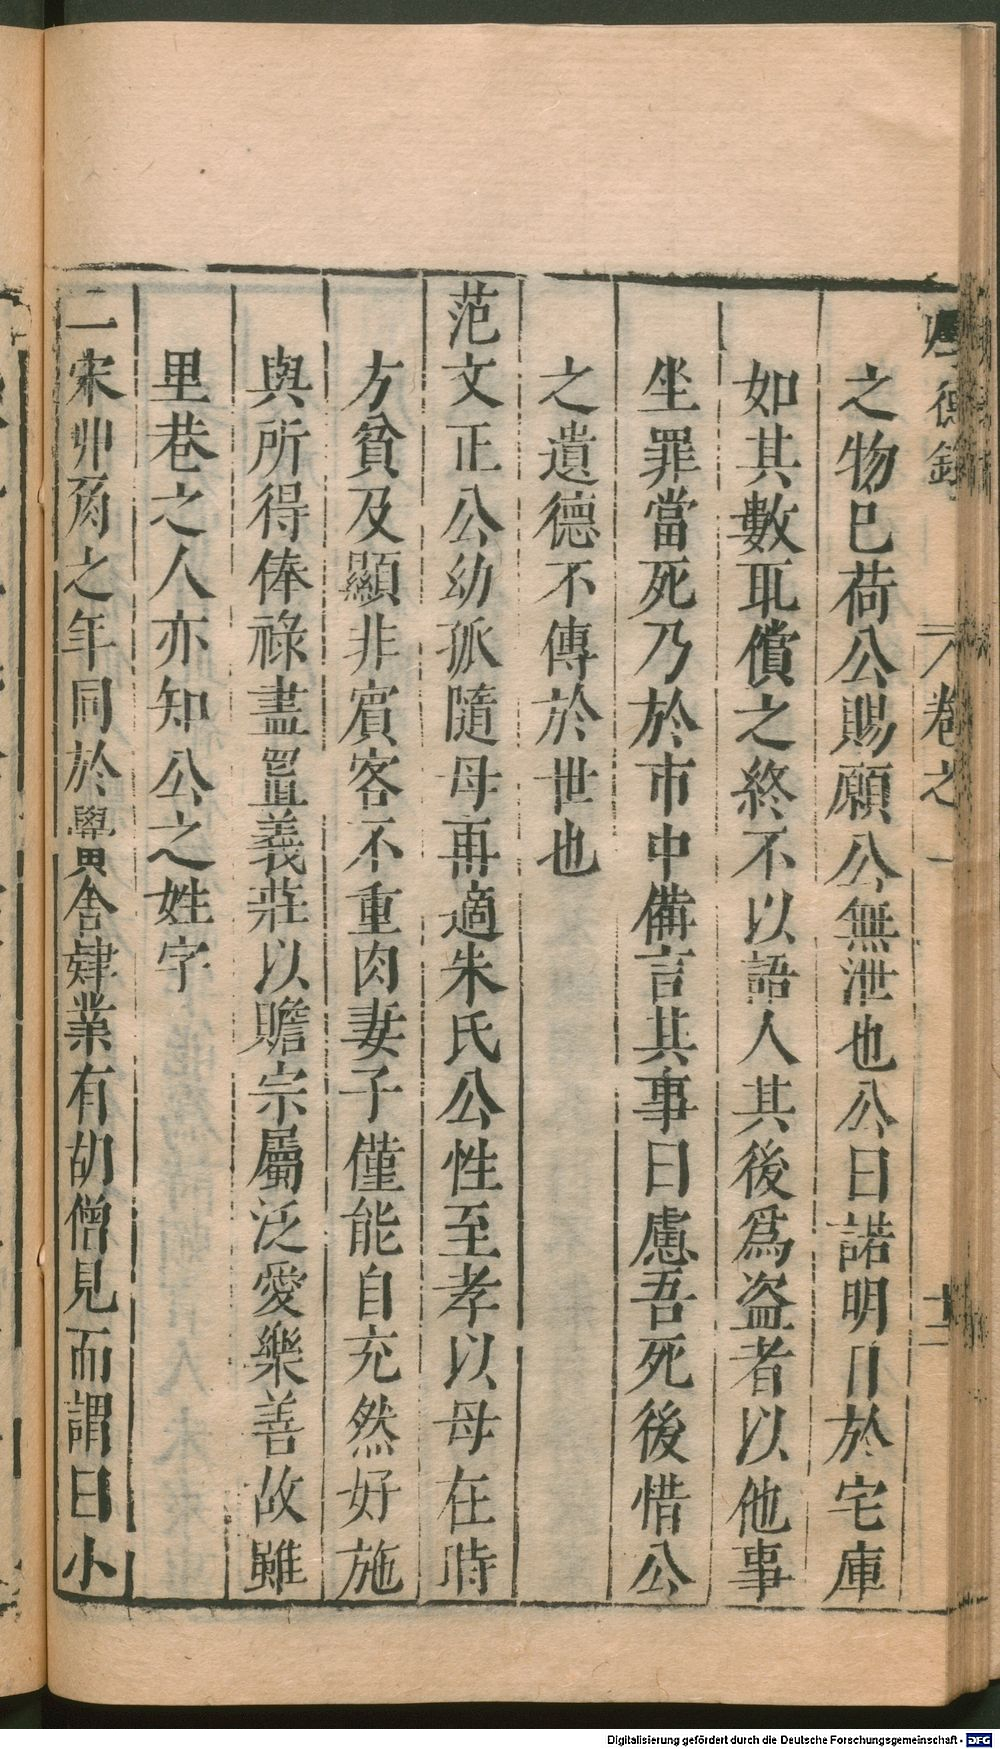 厚德錄 卷之一 十二
之物已荷公賜願公無泄也公曰諾明日於宅庫
如其數取償之終不以語人其後爲盜者以他事
坐罪當死乃於市中備言其事曰慮吾死後惜公
之遺德不傳於世也
范文正公幼孤隨母再適朱氏公性至孝以母在時
方貧及顯非賓客不重肉妻子僅能自充然好施
與所得俸祿盡置義莊以贍宗屬泛愛樂善故雖
里巷之人亦知公之姓字
二宋丱角之年同於黌舍肄業有胡僧見而謂曰小
Digitalisierung gefördert durch die Deutsche Forschungsgemeinschaft - DFG